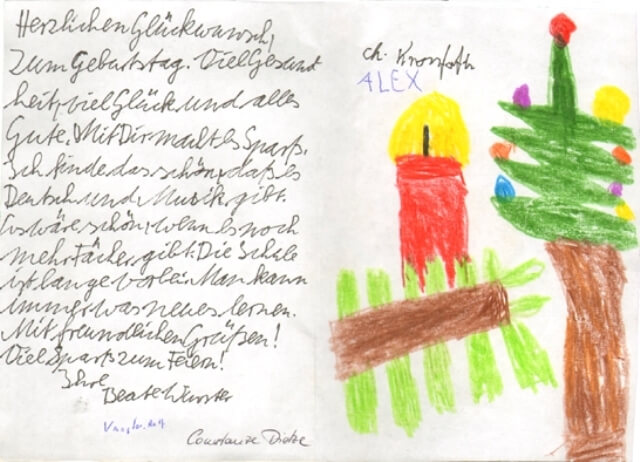 Herzlichen Glückwunsch,
zum Geburtstag. Viel Gesund
heit, viel Glück und alles
Gute. Mit Dir macht es Spaß.
Ich finde das schön, daß es
Deutsch und Musik gibt.
Es wäre schön, wenn es noch
mehr Fächer gibt. Die Schule
ist lange vorbei. Man kann
immer was neues lernen.
Mit freundlichen Grüßen!
Viel Spaß zum Feiern!
Ihre
Beate Wurster
Constanze Dietze
Ch.
ALEX